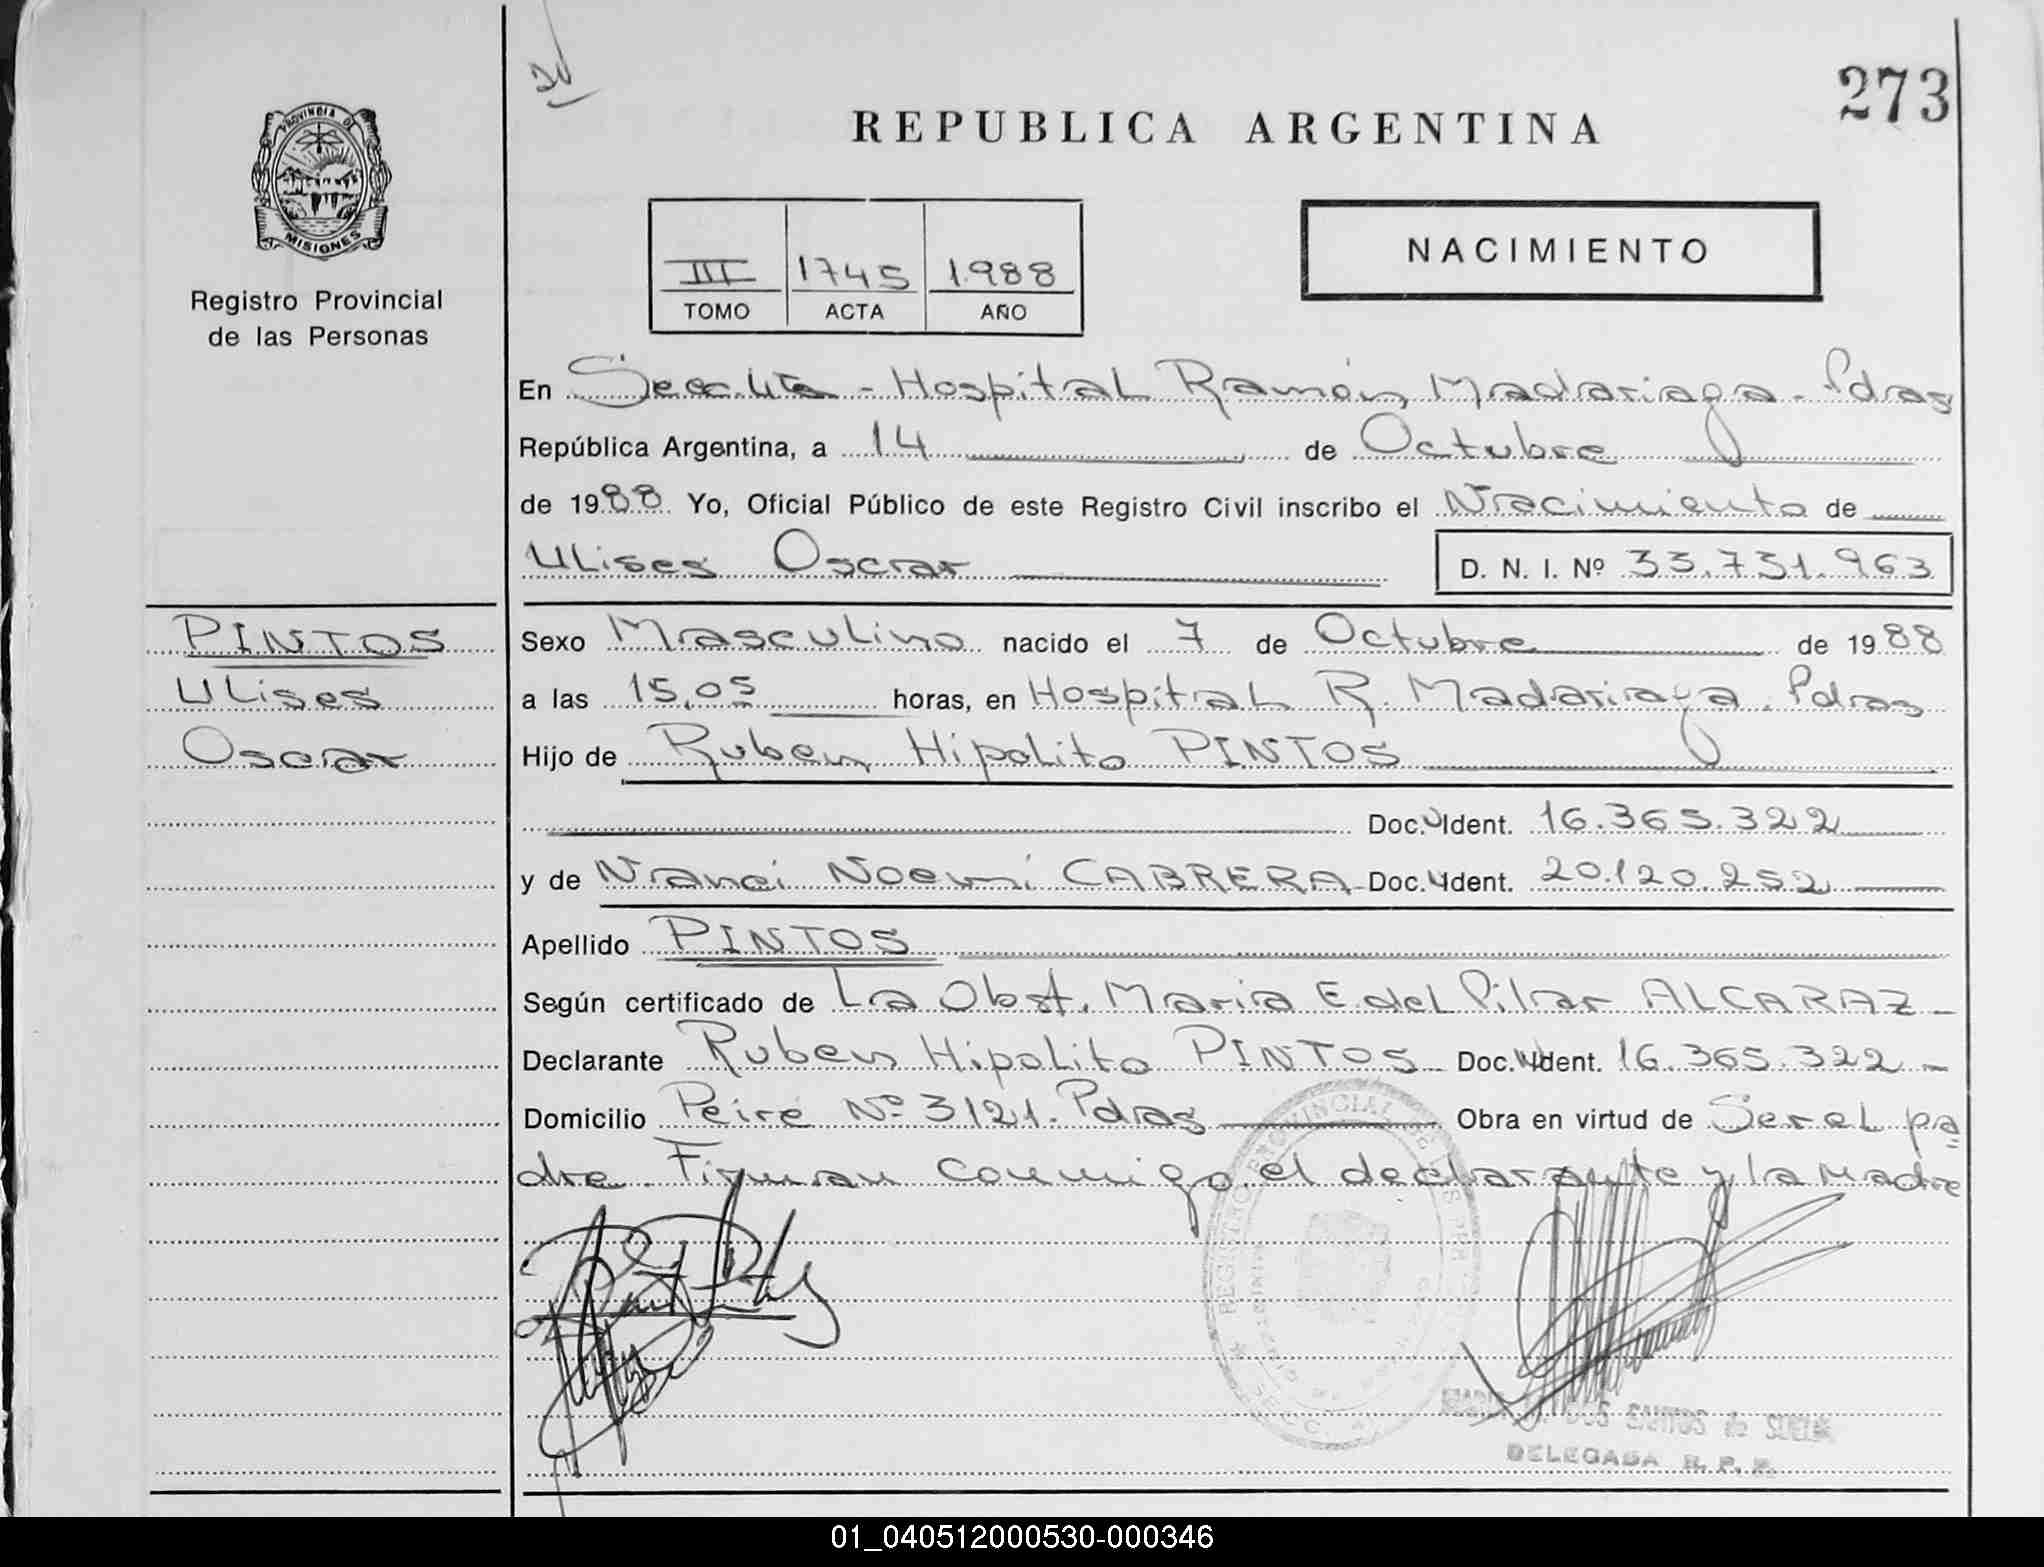 273
REPUBLICA ARGENTINA
PROVINCIA DE
MISIONES
Registro Provincial
de las Personas
III 1745 1.988
TOMO ACTA AÑO
NACIMIENTO
En Secc. 4ta - Hospital Ramón Madariaga - Pdas
República Argentina, a 14 de Octubre
de 1988 Yo, Oficial Público de este Registro Civil inscribo el Nacimiento de
Ulises Oscar D. N. I. Nº 33.731.963
PINTOS
Ulises
Oscar
Sexo Masculino nacido el 7 de Octubre de 1988
a las 15,05 horas, en Hospital R. Madariaga. Pdas
Hijo de Ruben Hipolito PINTOS
Doc. Ident. 16.365.322
y de Nanci Noemi CABRERA Doc. Ident. 20.120.252
Apellido PINTOS
Según certificado de La Obst. Maria E. del Pilar ALCARAZ -
Declarante Ruben Hipolito PINTOS Doc. Ident. 16.365.322 -
Domicilio Peire Nº 3121. Pdas Obra en virtud de Ser el pa
dre. Firman conmigo el declarante y la Madre
DOS SANTOS de
DELEGADA R. P. P.
01_040512000530-000346